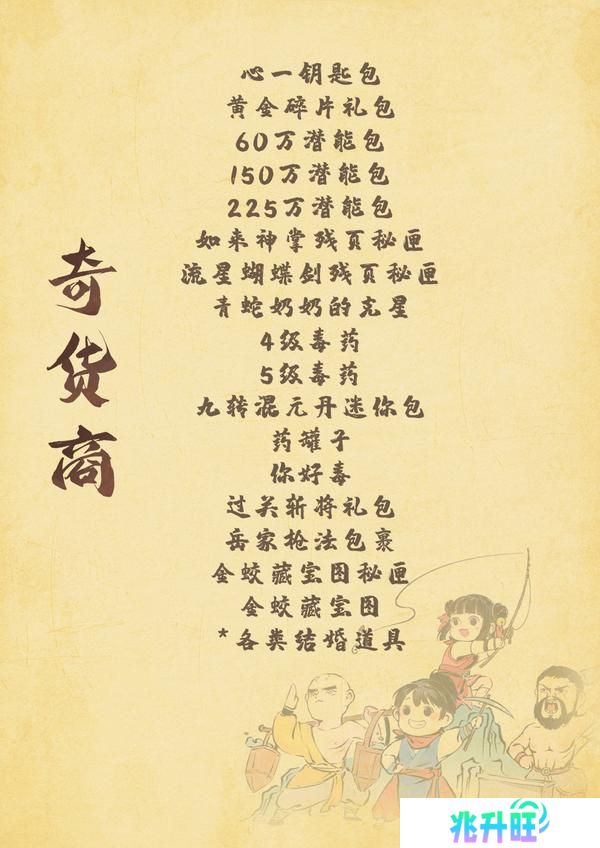 奇货商
心一钥匙包
黄金碎片礼包
60万潜能包
150万潜能包
225万潜能包
如来神掌残页秘匣
流星蝴蝶剑残页秘匣
青蛇奶奶的克星
4级毒药
5级毒药
九转混元丹迷你包
药罐子
你好毒
过关斩将礼包
岳家枪法包裹
金蛟藏宝图秘匣
金蛟藏宝图
*各类结婚道具
兆升旺